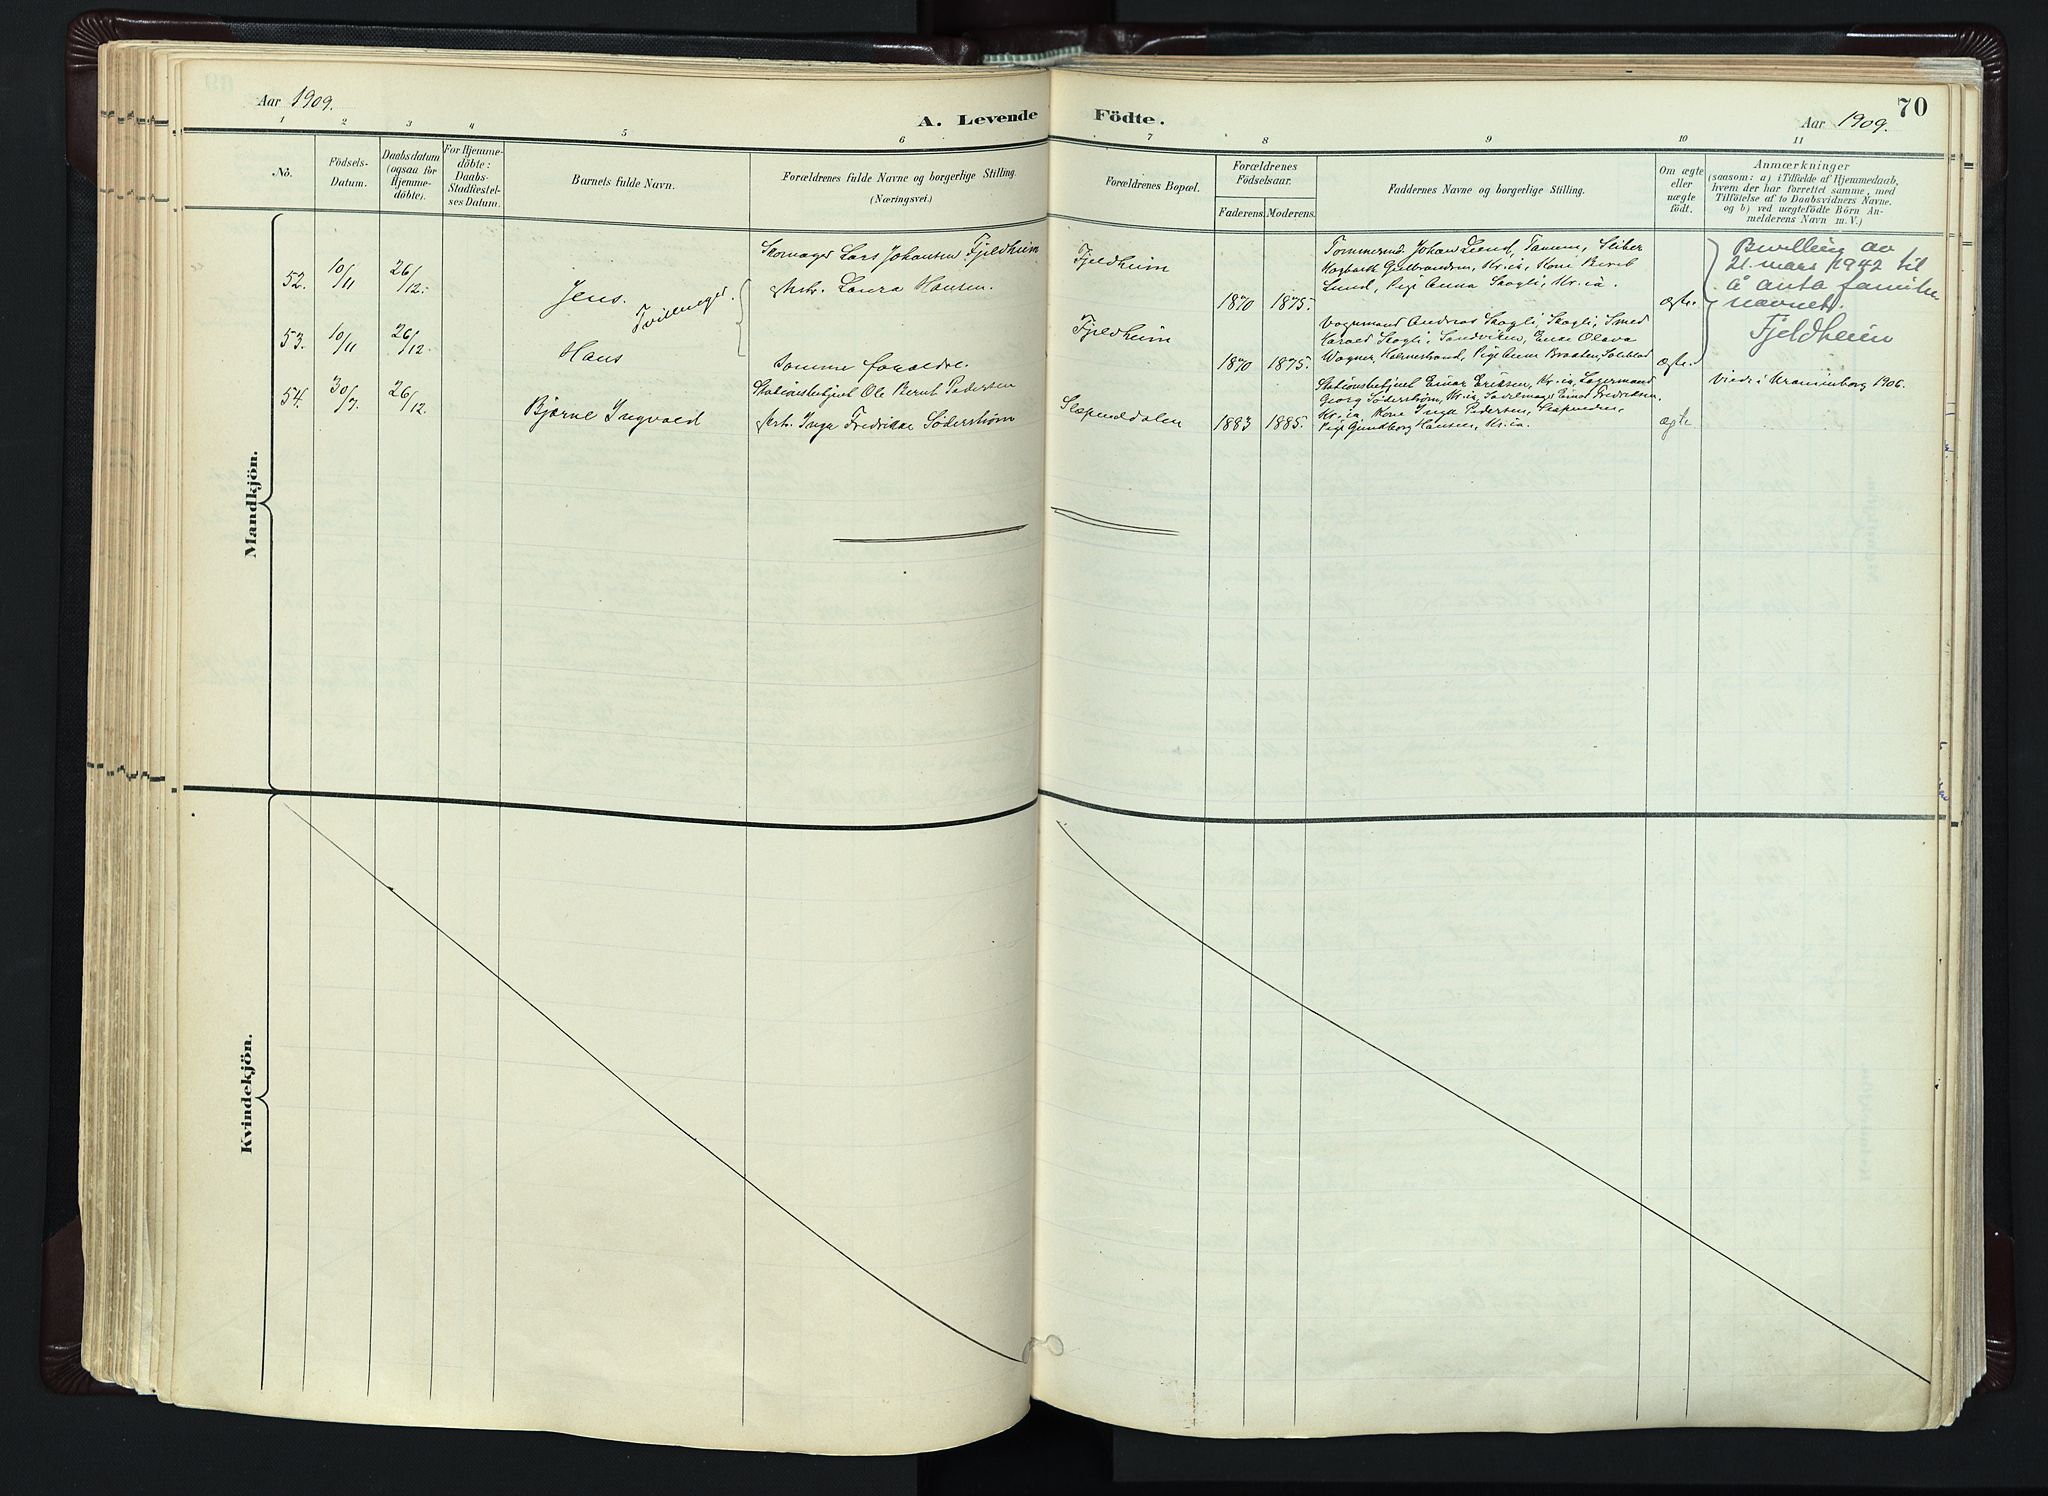 Aar 1909.
A. Levende Födte.
Aar 1909.
70
1 2 3 4 5 6 7 8 9 10 11
No.
Födsels-
Datum.
Daabsdatum
(ogsaa for
Hjemme-
döbte).
For Hjemme-
döbte:
Daabs-
Stadfæstel-
ses Datum.
Barnets fulde Navn.
Forældrenes fulde Navne og borgerlige Stilling.
(Næringsvei.)
Forældrenes Bopæl.
Forældrenes
Födselsaar.
Faderens. Moderens.
Faddernes Navne og borgerlige Stilling.
Om ægte
eller
uægte
födt.
Anmærkninger
(saasom: a) i Tilfælde af Hjemmedaab,
hvem der har forrettet samme, med
Tilföielse af to Daabsvidners Navne,
og b) ved uægtefödte Börn An-
melderens Navn m. V.)
Mandkjön.
52. 10/11 26/12. Jens. Tvillinger.
Skomager Lars Johansen Fjeldheim
Hstr. Laura Hansen.
Fjeldheim
1870 1875.
Tømmermd Johan Lund, Tanum, Sliber
Hagbarth Gulbrandsen, Kr.ia, Kone Berit
Lund, Pige Anna Skogli, Kr.ia.
ægte.
Bevilling av
21. mars 1942 til
å anta familie
navnet
Fjeldheim
53. 10/11 26/12. Hans
samme forældre.
Fjeldheim
1870 1875.
Vognmand Andreas Skogli, Skogli, Smed
Harald Skogli, Sandviken, Enke Olava
Wagner, Holmestrand, Pige Anna Braaten,
ægte.
54. 30/7 26/12. Bjarne Ingvald
Stationsbetjent Ole Bernt Pedersen
Hstr. Inga Fredrikke Söderstrøm
Slæpenddalen
1883 1885.
Stationsbetjent Einar Eriksen, Kr.ia, Lagermand
Georg Söderstrøm, Kr.ia, Sadelmager Einar Fredriksen,
Kr.ia, Kone Inga Pedersen, Slæpenden,
Pige Gundborg Hansen, Kr.ia.
ægte
viede i Kronenborg 1906.
Kvindekjön.